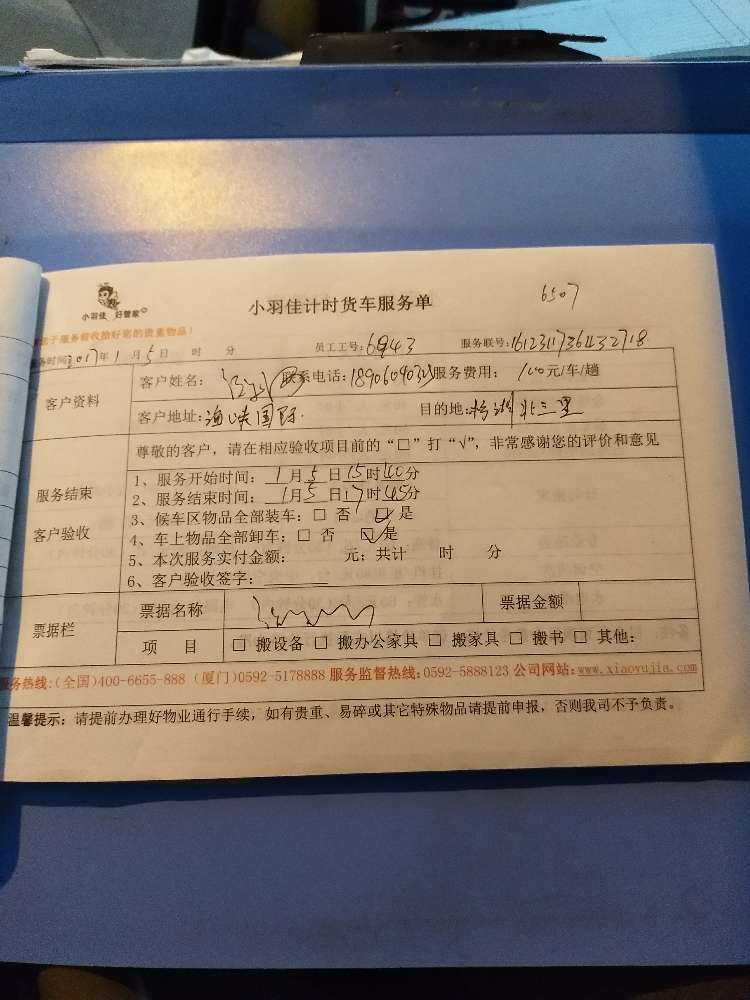 小羽佳 好管家
小羽佳计时货车服务单
6507
于服务前收拾好您的贵重物品!
务时间:2017年1月5日 时 分 员工工号:6943 服务联号:1612311736432718
客户资料
客户姓名: 联系电话: 服务费用: 100元/车/趟
客户地址:海峡国际 目的地: 北三里
服务结束
客户验收
尊敬的客户,请在相应验收项目前的“□”打“√”,非常感谢您的评价和意见
1、服务开始时间: 1月5日15时40分
2、服务结束时间: 1月5日17时45分
3、候车区物品全部装车:□ 否 ☑ 是
4、车上物品全部卸车:□ 否 ☑ 是
5、本次服务实付金额: 元;共计 时 分
6、客户验收签字:
票据栏
票据名称 票据金额
项 目 □ 搬设备 □ 搬办公家具 □ 搬家具 □ 搬书 □ 其他:
服务热线:(全国)400-6655-888 (厦门)0592-5178888 服务监督热线:0592-5888123 公司网站:www.xiaoyujia.com
温馨提示:请提前办理好物业通行手续,如有贵重、易碎或其它特殊物品请提前申报,否则我司不予负责。